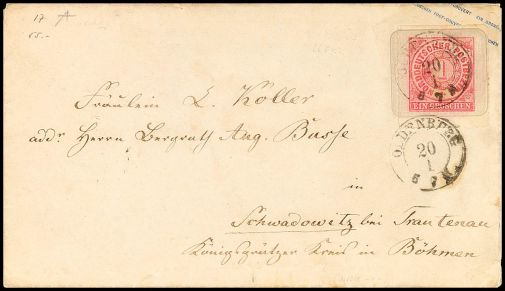 17
65.-
NORDDEUTSCHER POSTBEZIRK
1
EIN GROSCHEN
20
1
Fräulein L. Koller
addr Herrn Bergrath Aug. Busse
OLDENBURG
20
1
in
Schwadowitz bei Trautenau
Königsgrätzer Kreis in Böhmen